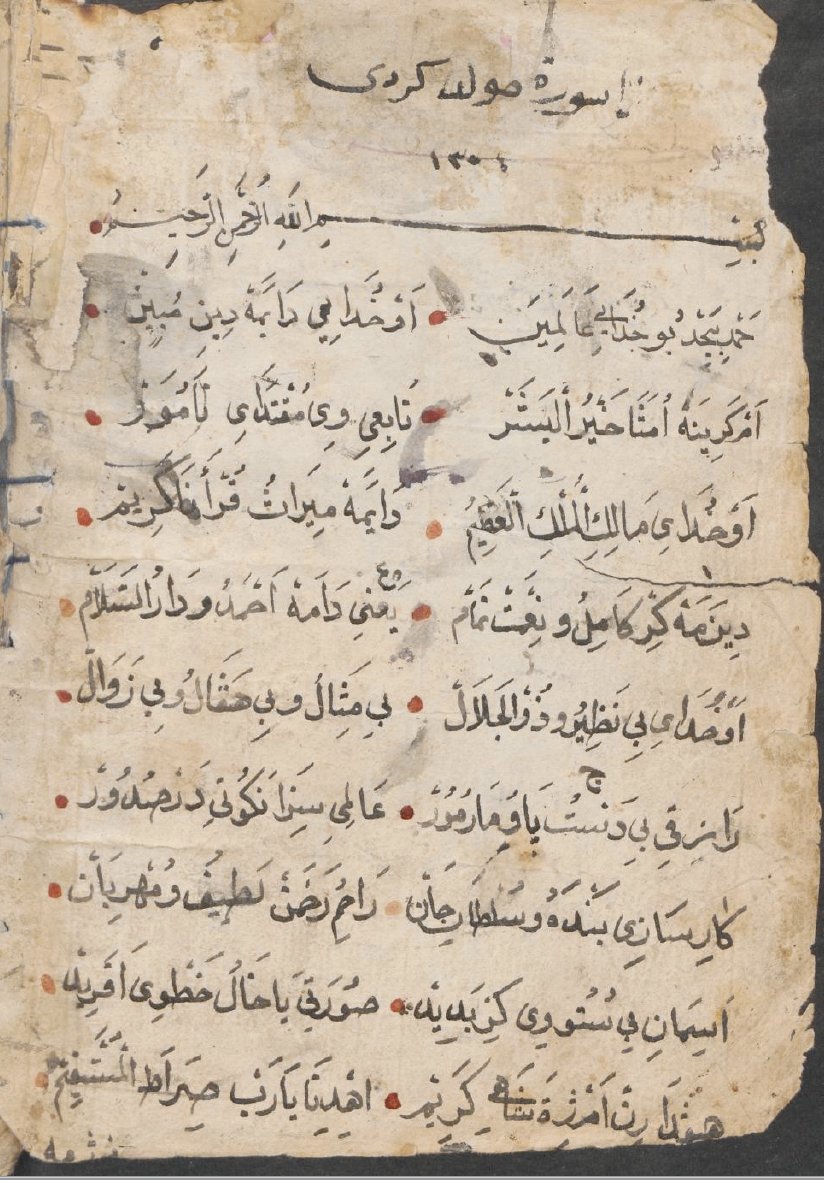 سورة مولد کردی
١٣٠٤
بسم الله الرحمن الرحيم
حمد بيحد بو خداي عالمين اَو خداىِ دايمة دين مبين
اَم کرينه اُمّتا خَيرُ البَشَر تابعي وىِ مقتداىِ نامور
اَو خداىِ مالك الملك العظيم دايمة ميراث قرأنا كريم
دين مه کر کامل و نعمت تمام يعني دامه احمد و دار السلام
اَو خداىِ بي نظير و ذو الجلال بي مثال و بي هڤال و بي زوال
رازقي بي دست پا و مار و مور عالمي سِرّا نکوني در صدور
کارسازي بنده و سلطان جان راحم رحمن لطيف و مهربان
اَسمان بي ستووي کر بديد صورتي با خال خطّ وى اَفريد
کريم اهدنا يا رب صراط المستقيم